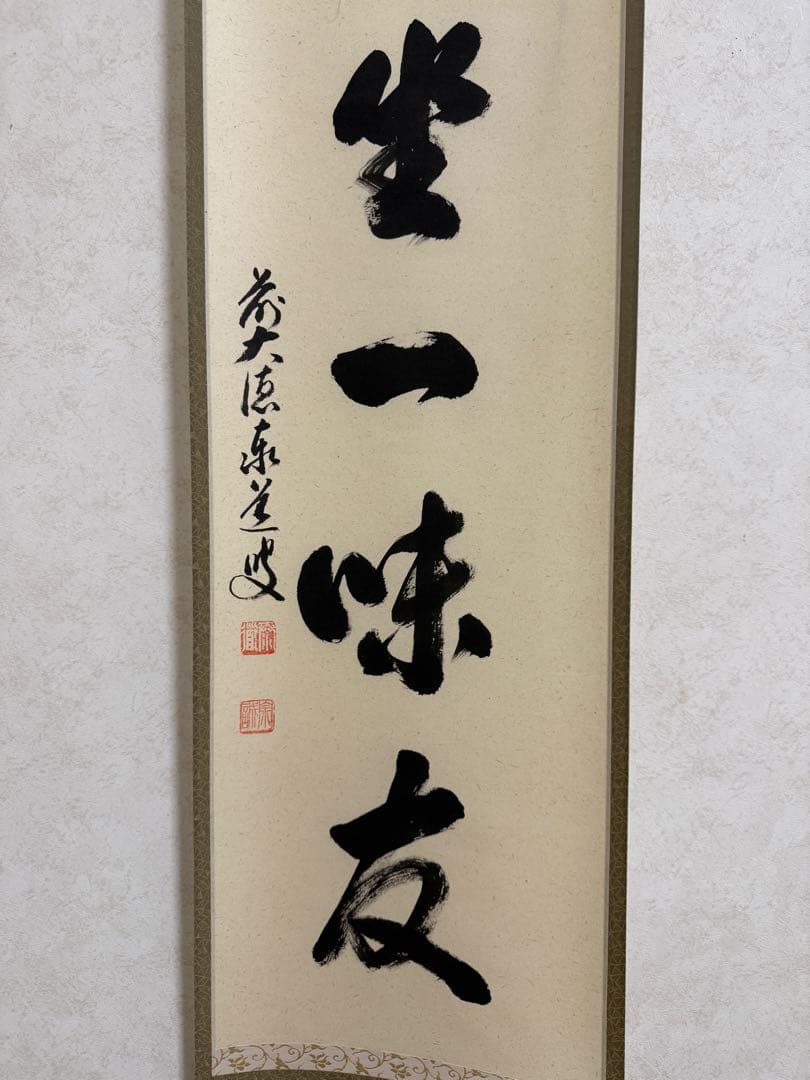 坐一味友
前大徳泰道叟